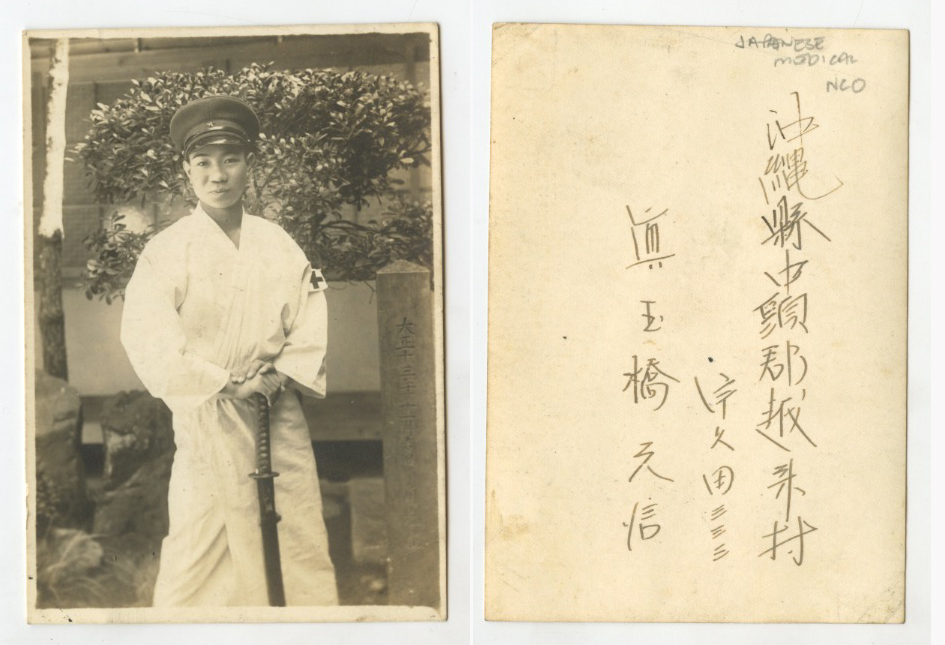 大正十三年十一月
JAPANESE
MEDICAL
NCO
沖縄縣中頭郡越来村
字久田三三三
眞玉橋元信